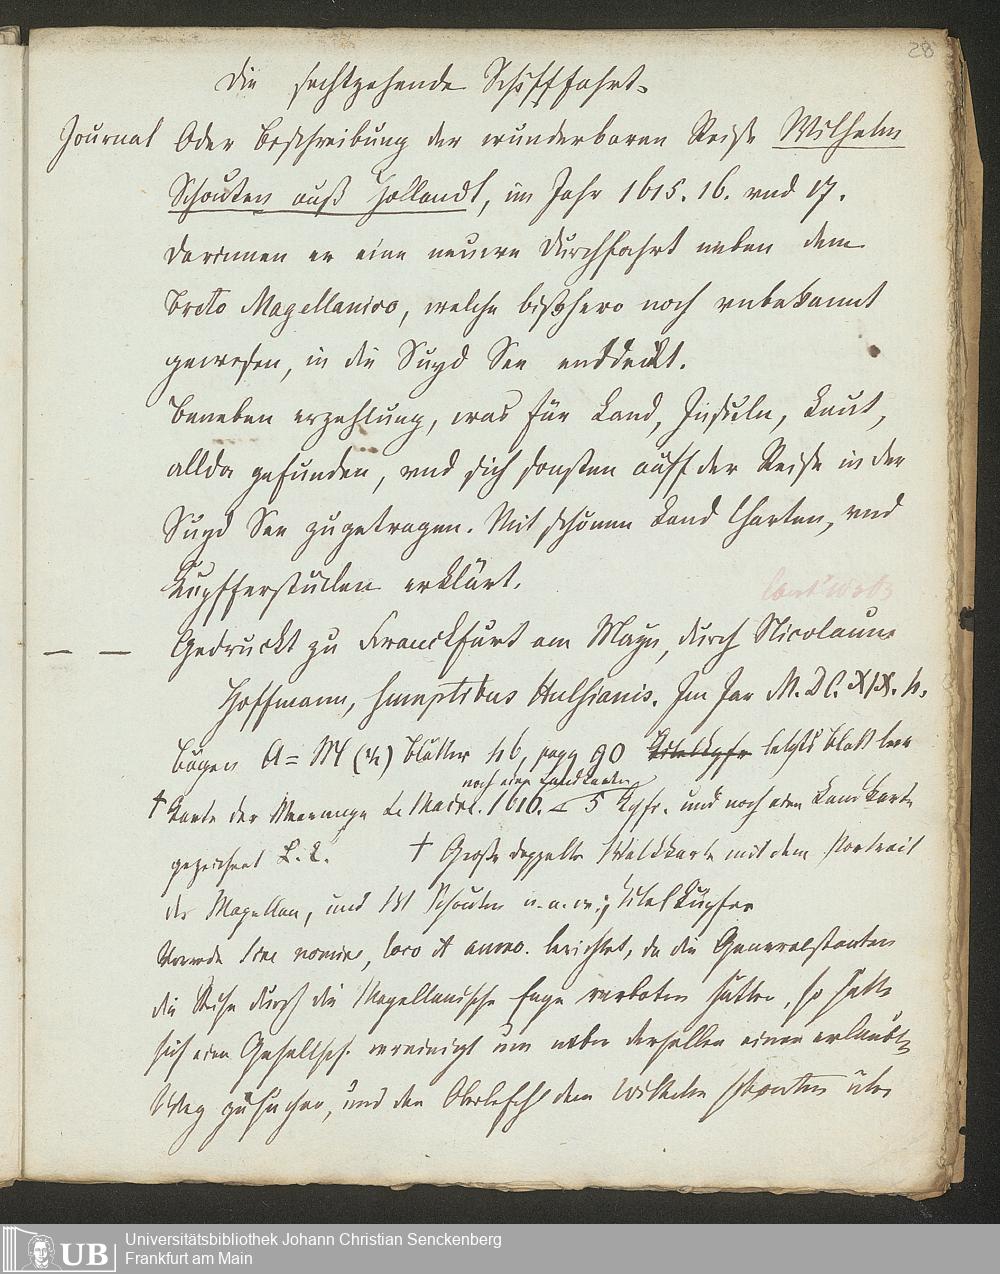 28
Die sechtzehende Schifffahrt.
Journal Oder Beschreibung der wunderbaren Reise Wilhelm
Schouten auß Hollandt, im Jahr 1615. 16. vnd 17.
Darinnen er eine neuwe Durchfahrt neben dem
Freto Magellanico, welche bißhero noch vnbekannt
gewesen, in die Suyd See entdeckt.
Beneben erzehlung, was für Land, Insuln, Leut,
allda gefunden, vnd sich sonsten auff der Reise in der
Suyd See zugetragen. Mit schönen Land Charten, vnd
Kupfferstücken erklärt.
— — Gedruckt zu Franckfurt am Mayn, durch Nicolaum
Hoffmann, sumptibus Hulsianis. Im Jar M. DC. XIX. 4.
Bogen A = M Blätter 46, pagg 90 letztes Blatt leer
noch eine Landkarte
† Karte der 1616. 5 Kpfr. und noch eine Landkarte
gezeichnet L. 2. † Große doppelte Weltkarte mit dem Portrait
des Magellan, und W Schouten u. a. m.; Titel Kupfer
Vorrede sine nomine, loco et anno. berichtet, da die Generalstaaten
die Reise durch die Magellanische Enge verboten hatten, so hatte
sich eine Gesellsch. vereinigt um neben derselben einen erlaubten
Weg zu suchen, und den Oberbefehl dem Wilhelm Schouten über
Universitätsbibliothek Johann Christian Senckenberg
Frankfurt am Main
UB